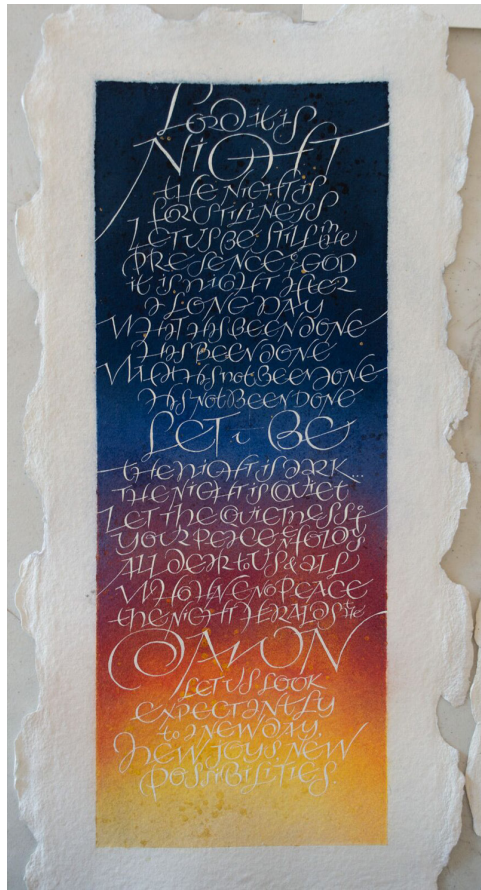 LORD it is
NIGHT
THE NIGHT IS
FOR STILLNESS
LET US BE STILL in the
PRESENCE of GOD
it is NIGHT AFTER
A LONG DAY
WHAT HAS BEEN DONE
HAS BEEN DONE
WHAT HAS not BEEN DONE
HAS not BEEN DONE
LET it BE
THE NIGHT IS DARK...
THE NIGHT IS QUIET
LET THE QUIETNESS of
YOUR PEACE ENFOLD US
ALL DEAR to US & ALL
WHO HAVE NO PEACE
THE NIGHT HERALDS the
DAWN
LET US LOOK
EXPECTANTLY
to A NEW DAY,
NEW JOYS NEW
POSSIBILITIES.